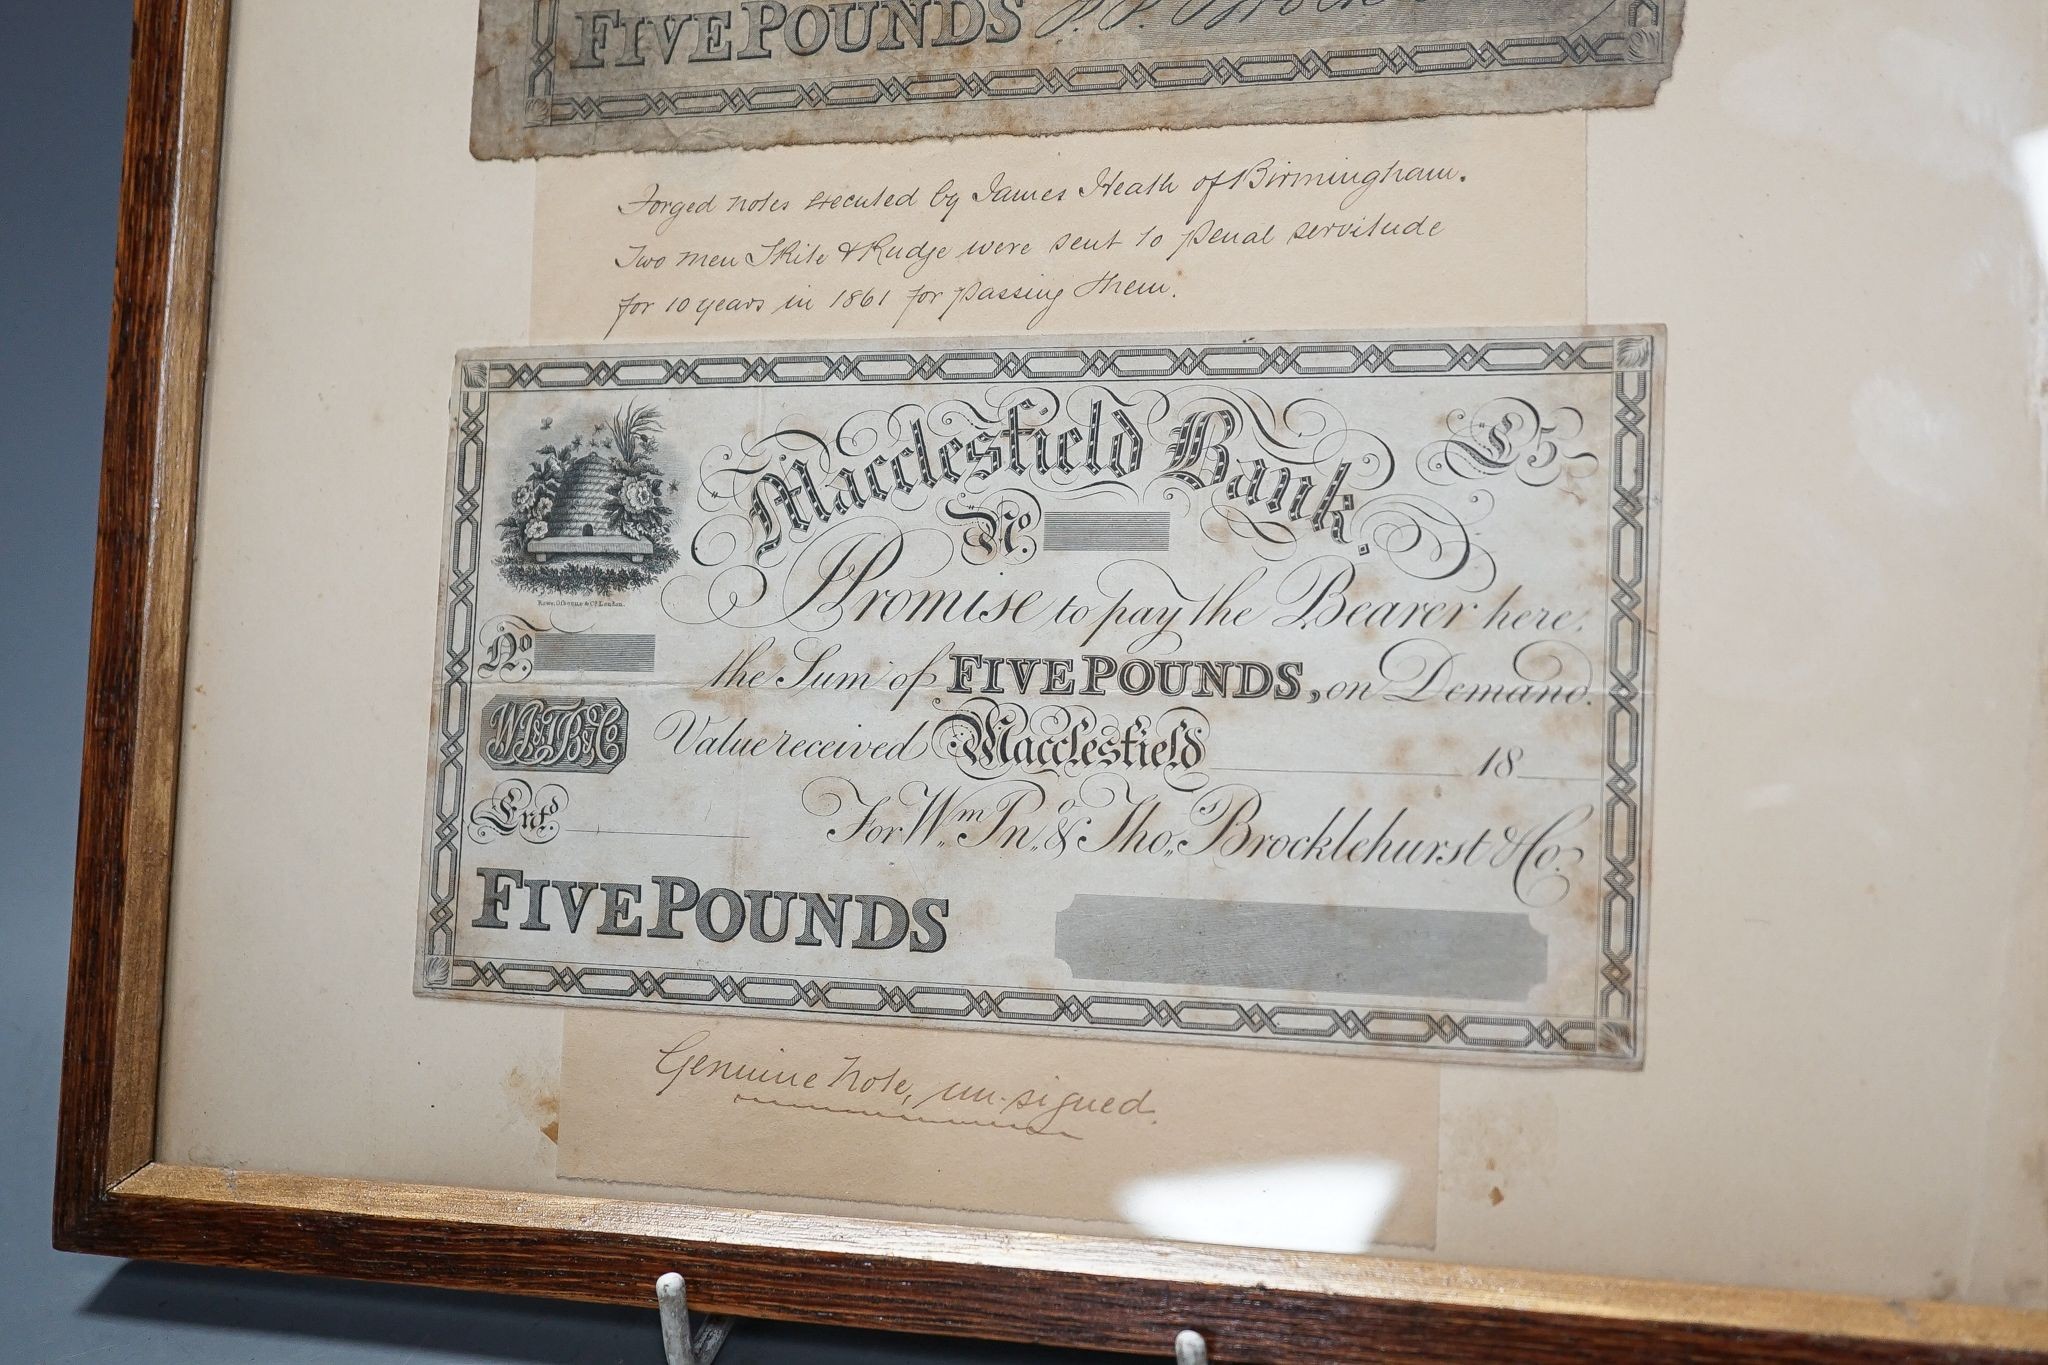 FIVE POUNDS
Forged notes executed by James Heath of Birmingham.
Two men Skite & Rudge were sent to penal servitude
for 10 years in 1861 for passing them.
Macclesfield Bank.
£5
No.
I Promise to pay the Bearer here,
the Sum of FIVE POUNDS, on Demand.
Rowe, Osborne & Co. London.
No.
W J & T B & Co
Value received Macclesfield 18
Entd.
For Wm. Jno. & Thos. Brocklehurst & Co.
FIVE POUNDS
Genuine note, un-signed.